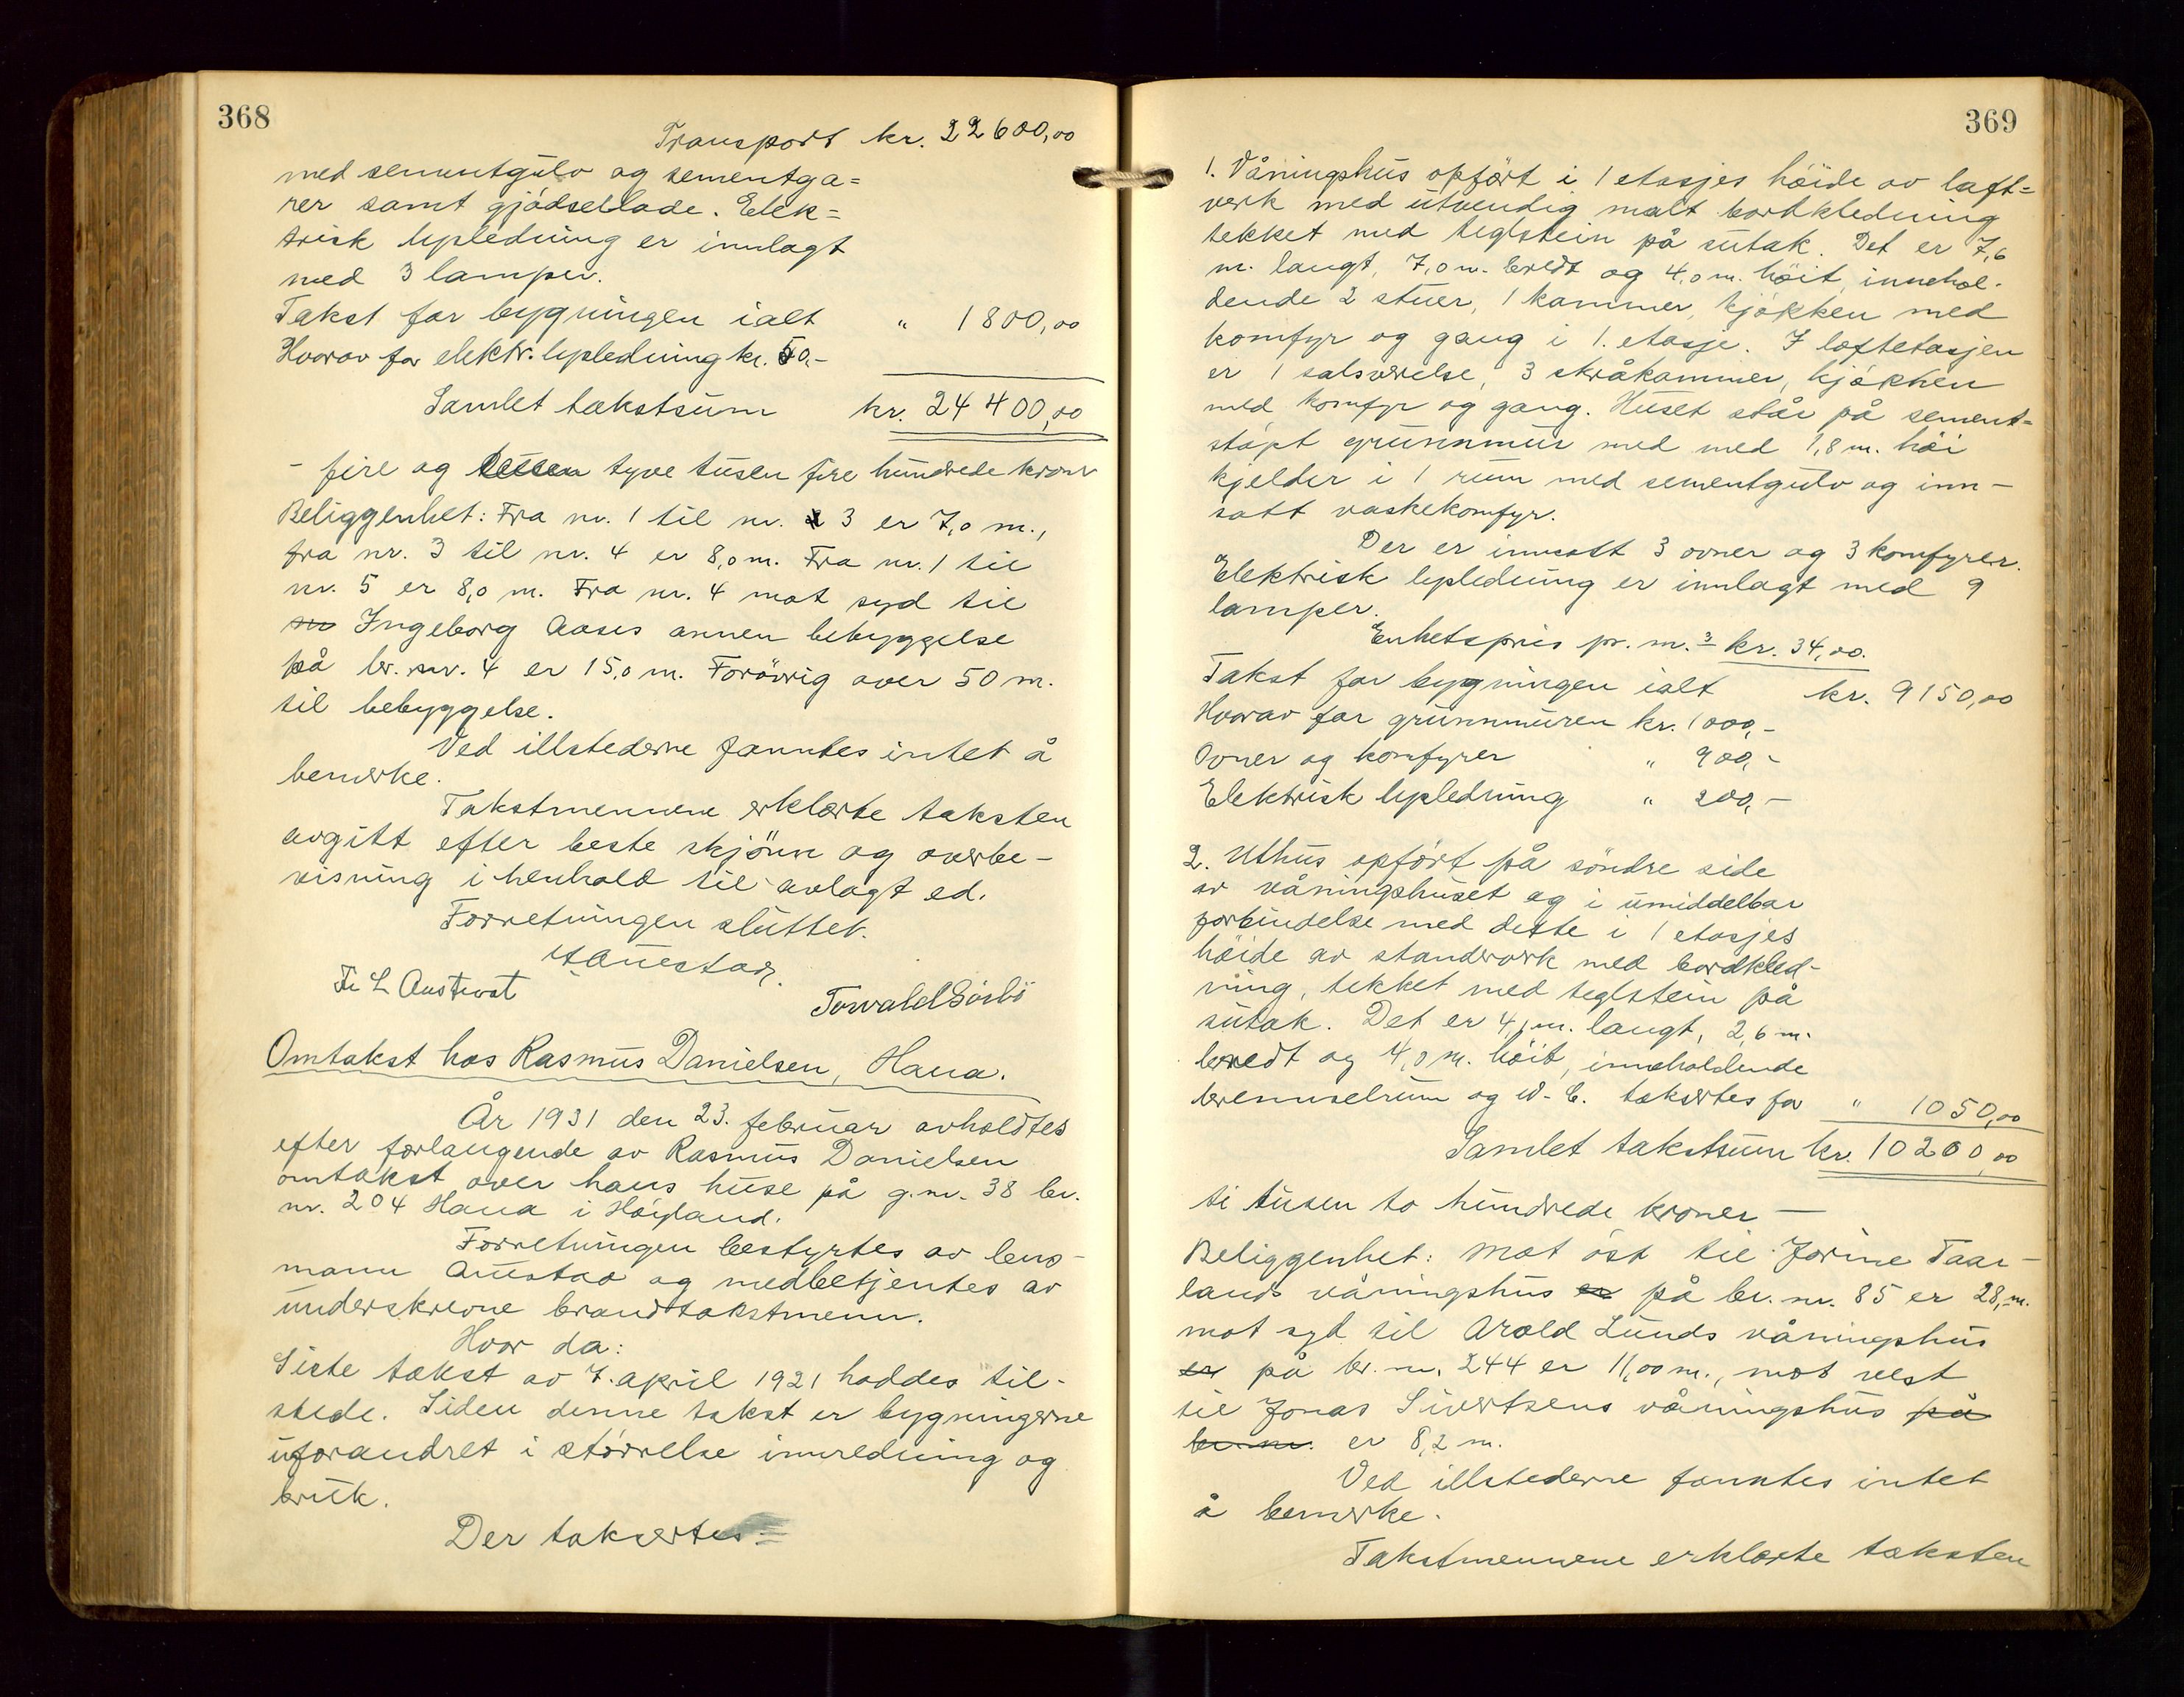 368
Transport kr. 22600,00
med sementgulv og sementga=
rer samt gjödsellade. Elek=
trisk lysledning er innlagt
med 3 lamper.
Takst for bygningen ialt " 1800,00
Hvorav for elektr. lysledning kr. 50,-
Samlet takstsum kr. 24400,00
- fire og tyve tusen fire hundrede kroner
Beliggenhet: Fra nr. 1 til nr. 3 er 7,0 m.,
fra nr. 3 til nr. 4 er 8,0 m. Fra nr. 1 til
nr. 5 er 8,0 m. Fra nr. 4 mot syd til
Ingeborg Aases annen bebyggelse
på br. nr. 4 er 15,0 m. Forövrig over 50 m.
til bebyggelse.
Ved illstederne fanntes intet å
bemerke.
Takstmennene erklærte taksten
avgitt efter beste skjönn og overbe-
visning i henhold til avlagt ed.
Forretningen sluttet.
Auestad
L Austvoll
Torvald Sörbö
Omtakst hos Rasmus Danielsen, Hana.
År 1931 den 23. februar avholdtes
efter forlangende av Rasmus Danielsen
omtakst over hans huse på g.nr. 38 br.
nr. 204 Hana i Höyland.
Forretningen bestyrtes av lens-
mann Auestad og medbetjentes av
underskrevne brandtakstmenn.
Hvor da:
Siste takst av 7. april 1921 haddes til-
stede. Siden denne takst er bygningerne
uforandret i störrelse innredning og
bruk.
Der taksertes:-
369
1. Våningshus opfört i 1 etasjes höide av laft=
verk med utvendig malt bordkledning
tekket med teglstein på sutak. Det er 7,6
m. langt, 7,0 m. bredt og 4,0 m. höit, innehol-
dende 2 stuer, 1 kammer, kjökken med
komfyr og gang i 1. etasje. I loftetasjen
er 1 salsværelse, 3 skråkammer, kjökken
med komfyr og gang. Huset står på sement=
stöpt grunnmur med med 1,8 m. höi
kjelder i 1 rum med sementgulv og inn-
satt vaskekomfyr.
Der er innsatt 3 ovner og 3 komfyrer.
Elektrisk lysledning er innlagt med 9
lamper.
Enhetspris pr. m.³ kr. 34,00.
Takst for bygningen ialt kr. 9150,00
Hvorav for grunnmuren kr. 1000,-
Ovner og komfyrer " 900,-
Elektrisk lysledning " 200,-
2. Uthus opfört på söndre side
av våningshuset og i umiddelbar
forbindelse med dette i 1 etasjes
höide av standverk med bordkled-
ning, tekket med teglstein på
sutak. Det er 4,1 m. langt, 2,6 m.
bredt og 4,0 m. höit, inneholdende
brenselrum og W.C. taksertes for " 1050,00
Samlet takstsum kr. 10200,00
ti tusen to hundrede kroner -
Beliggenhet: Mot öst til Jorine Taar-
lands våningshus er på br. nr. 85 er 28,- m.
mot syd til Arold Lunds våningshus
er på br. nr. 244 er 11,00 m., mot vest
til Jonas Sivertsens våningshus på
br. nr. er 8,2 m.
Ved illstederne fanntes intet
å bemerke.
Takstmennene erklærte taksten